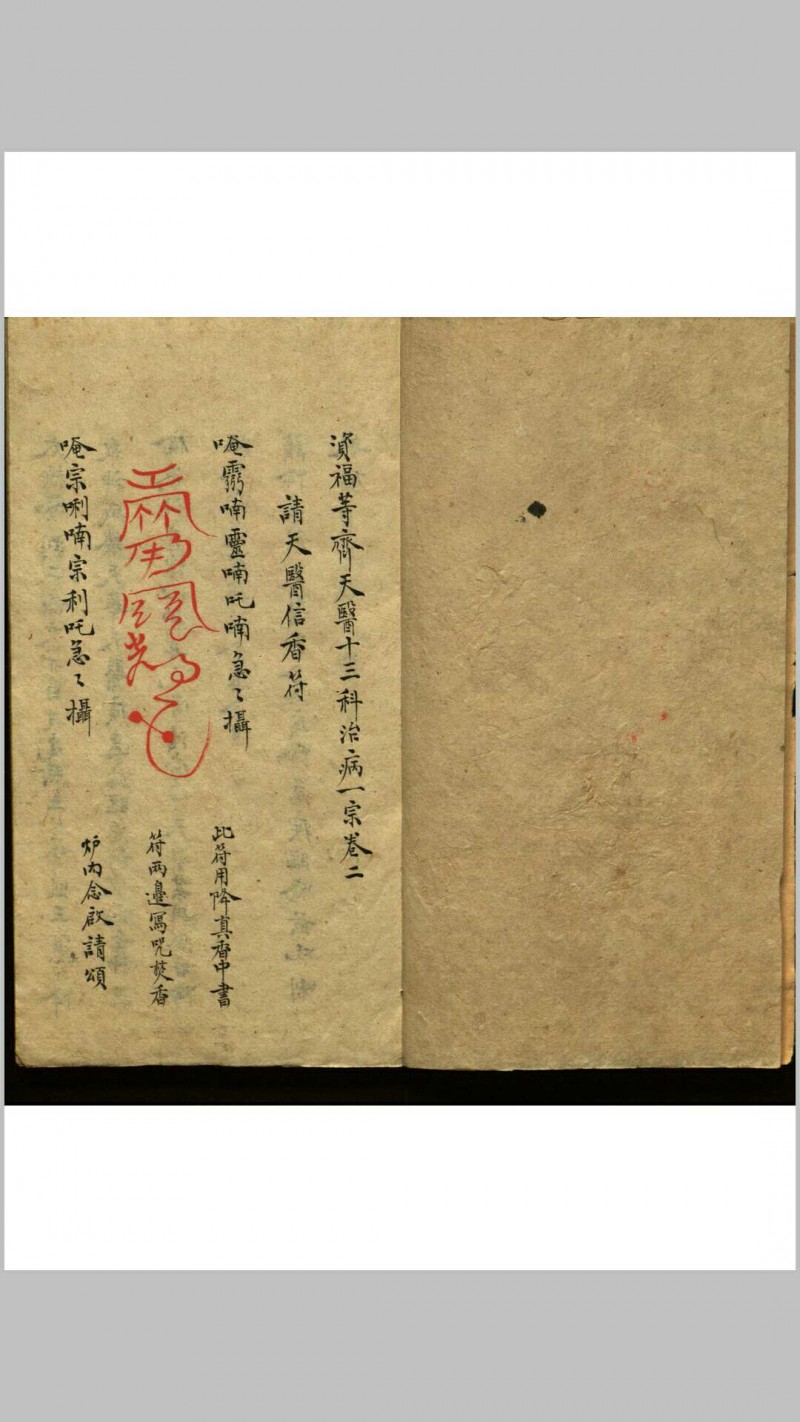 資福等齋天醫十三科治病一宗卷二
請天醫信香符
唵霛喃靈喃吒喃急〻攝
唵宗唎喃宗利吒急〻攝
此符用降真香中書
符兩邊寫咒焚香
炉内念啟請頌